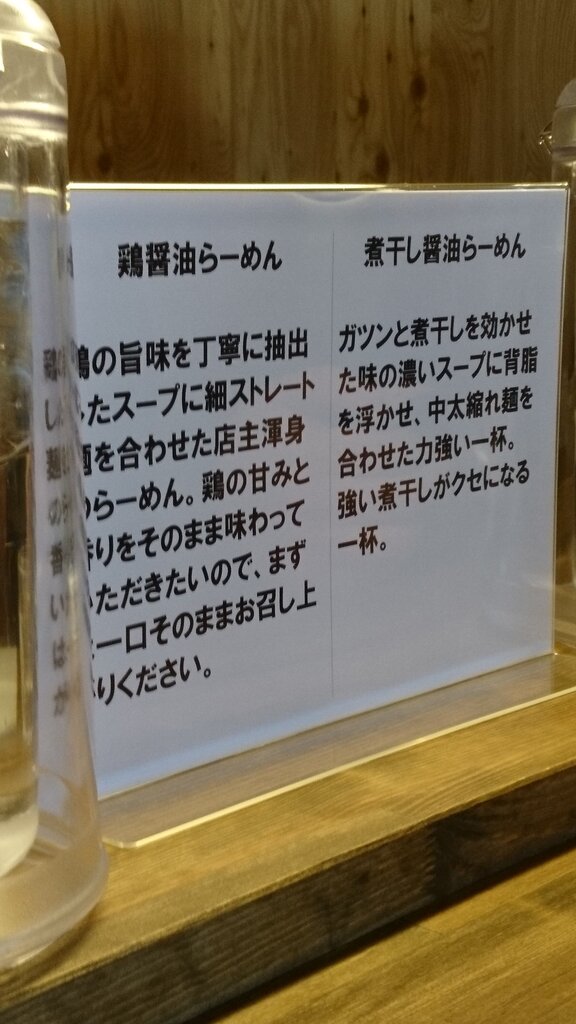 鶏醤油らーめん
鶏の旨味を丁寧に抽出
したスープに細ストレート
麺を合わせた店主渾身
のらーめん。鶏の甘みと
香りをそのまま味わって
いただきたいので、まず
は一口そのままお召し上
がりください。
煮干し醤油らーめん
ガツンと煮干しを効かせ
た味の濃いスープに背脂
を浮かせ、中太縮れ麺を
合わせた力強い一杯。
強い煮干しがクセになる
一杯。